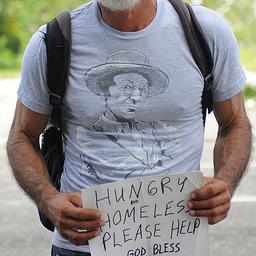 HUNGRY
AND
HOMELESS
PLEASE HELP
GOD BLESS